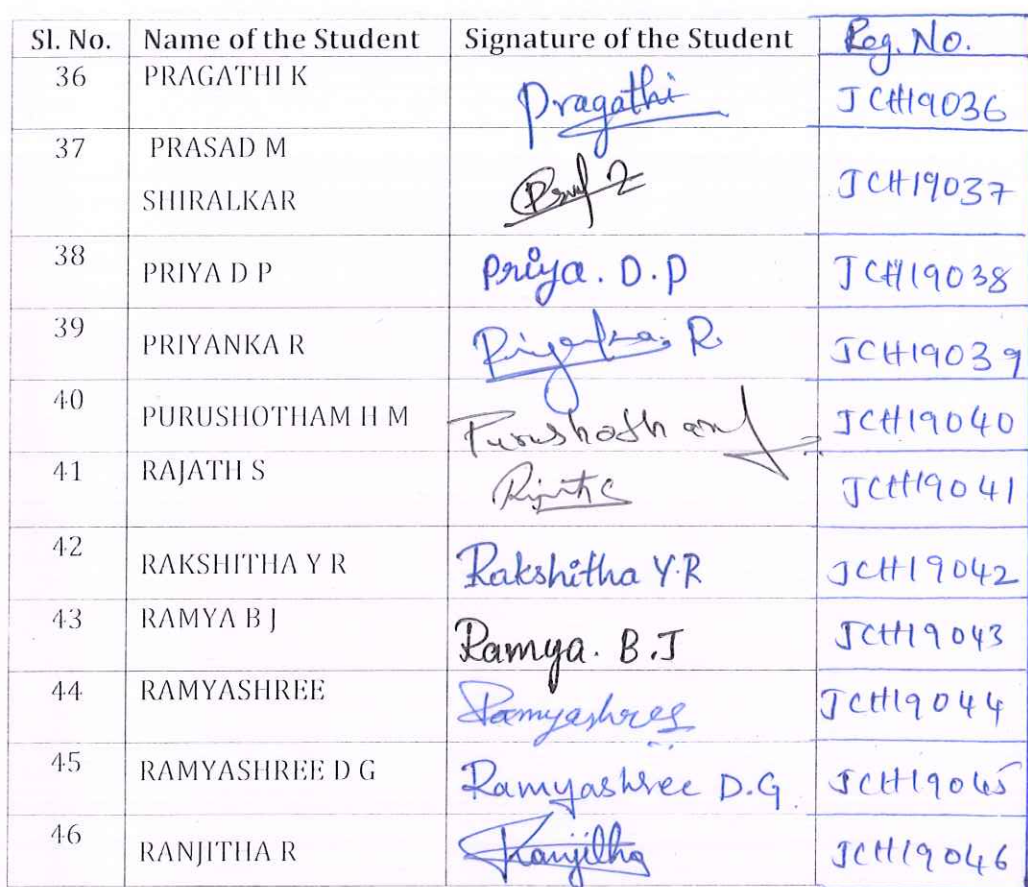 Sl. No. Name of the Student Signature of the Student Reg. No.
36 PRAGATHI K Pragathi JCH19036
37 PRASAD M
SHIRALKAR JCH19037
38 PRIYA D P Priya. D. P JCH19038
39 PRIYANKA R Priyanka. R. JCH19039
40 PURUSHOTHAM H M Purushotham JCH19040
41 RAJATH S JCH19041
42 RAKSHITHA Y R Rakshitha Y.R JCH19042
43 RAMYA B J Ramya. B.J JCH19043
44 RAMYASHREE Ramyashree JCH19044
45 RAMYASHREE D G Ramyashree D.G. JCH19045
46 RANJITHA R Ranjitha JCH19046